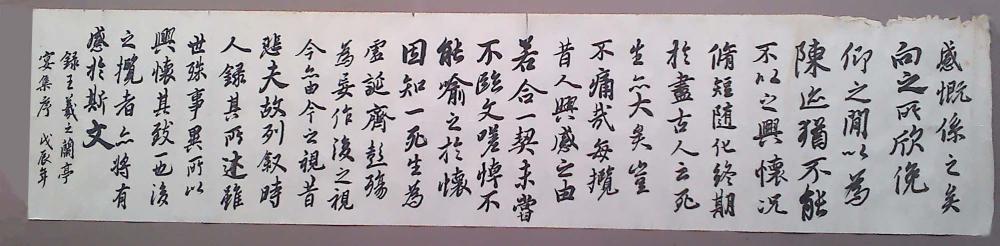 感慨係之矣
向之所欣俛
仰之間以為
陳迹猶不能
不以之興懷況
脩短隨化終期
於盡古人云死
生亦大矣豈
不痛哉每攬
昔人興感之由
若合一契未嘗
不臨文嗟悼不
能喻之於懷
固知一死生為
虛誕齊彭殤
為妄作後之視
今亦由今之視昔
悲夫故列叙時
人錄其所述雖
世殊事異所以
興懷其致一也後
之攬者亦將有
感於斯文
錄王羲之蘭亭
宴集序 戊辰年